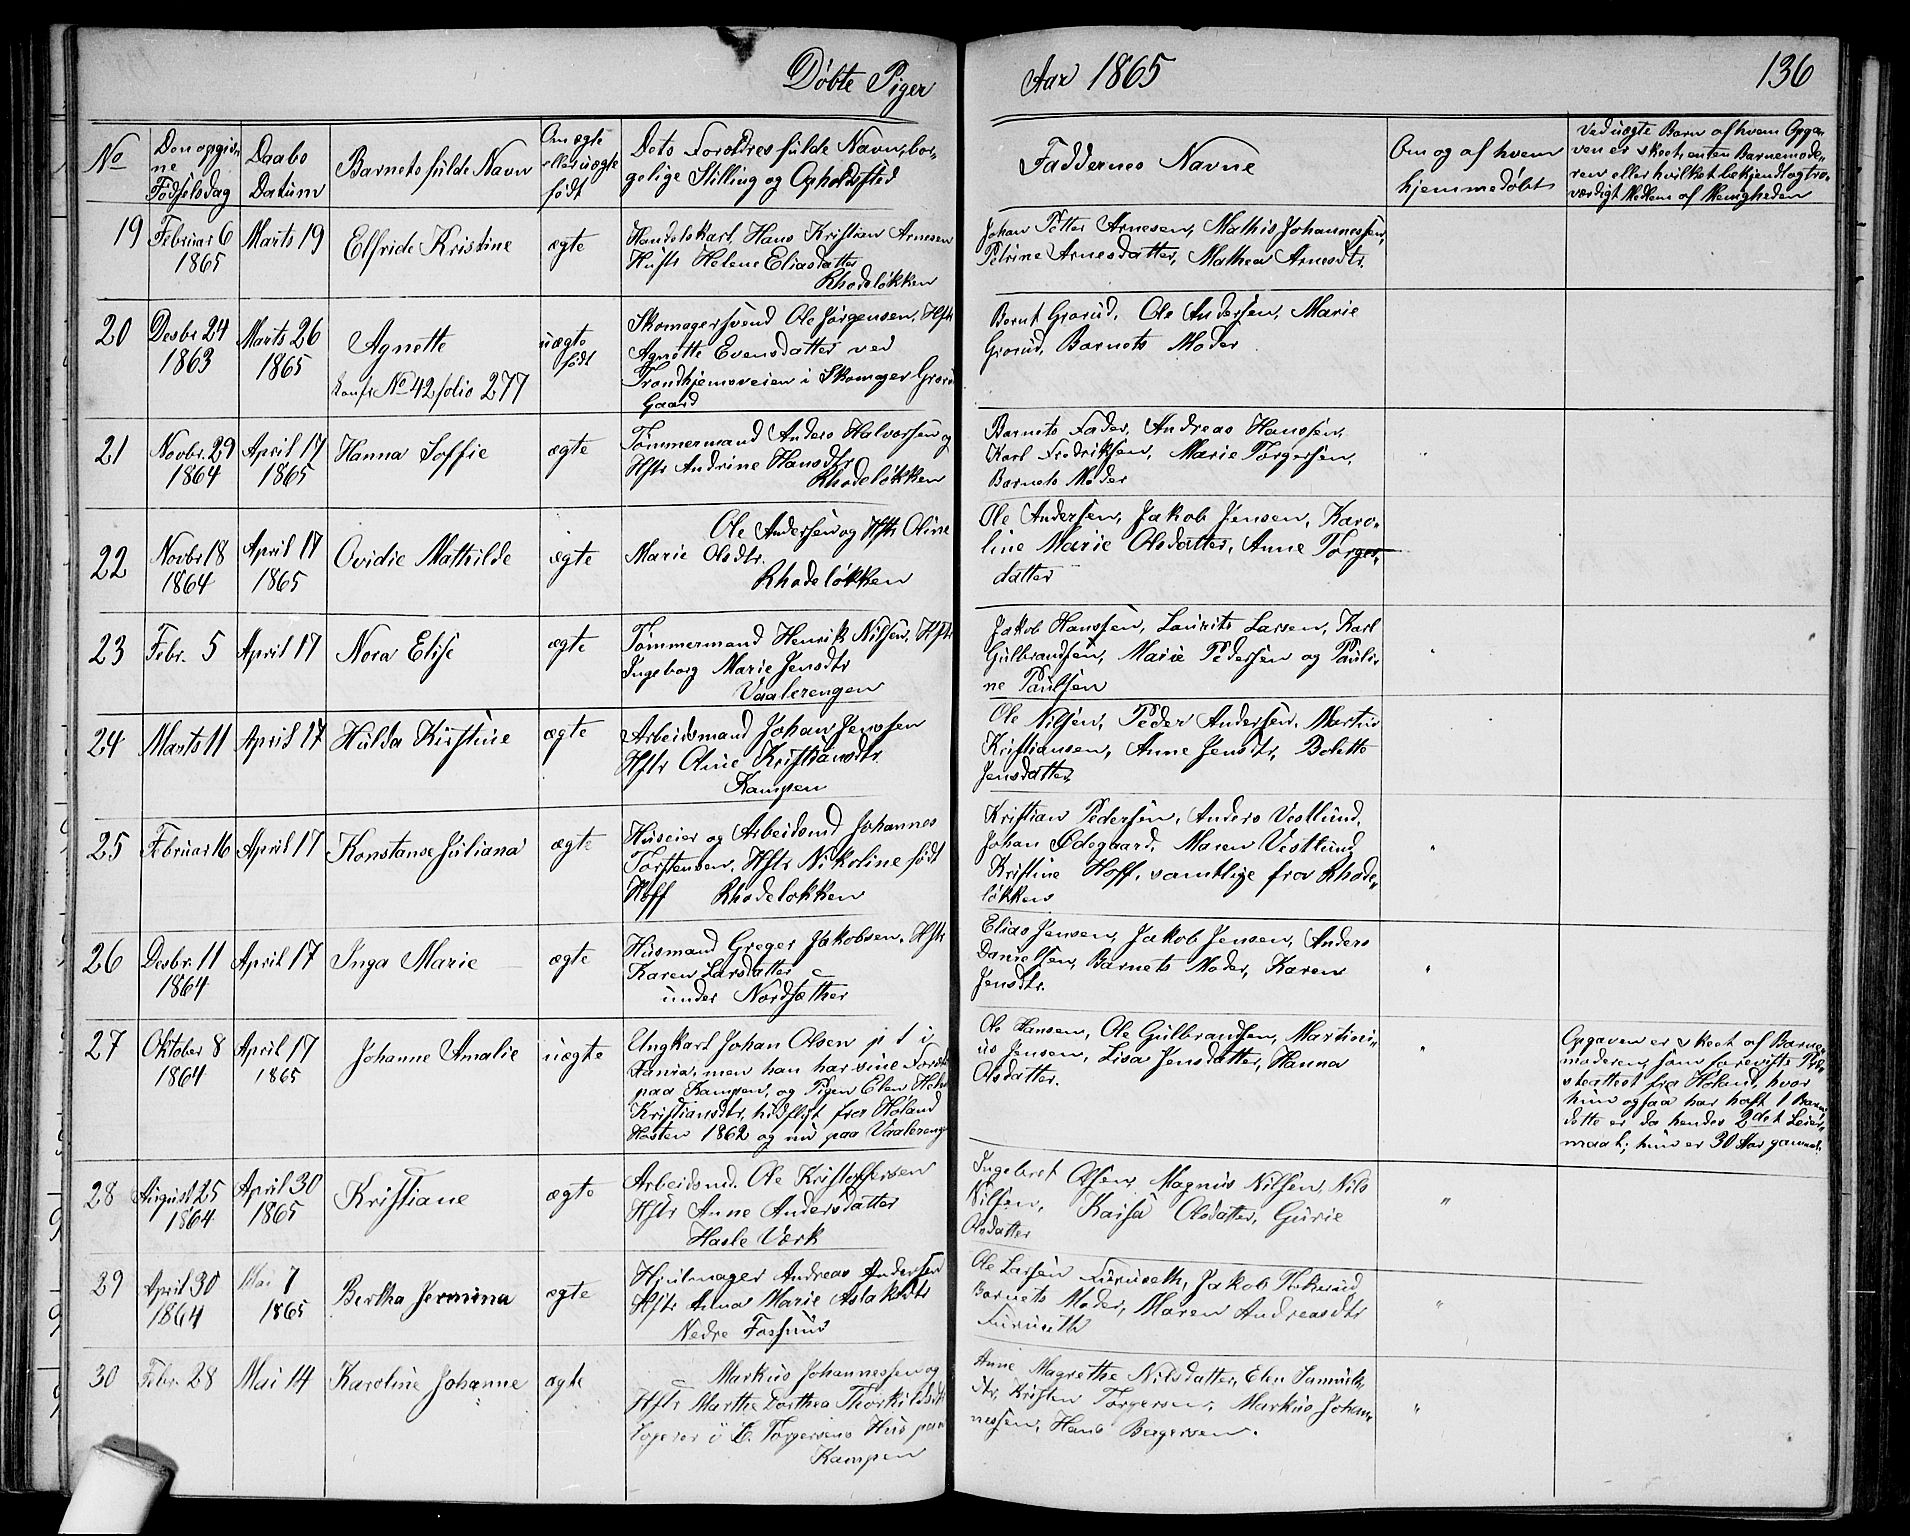 Døbte Piger Aar 1865 136
No
Den opgiv-
ne
Fødselsdag
Daabs
Datum
Barnets fulde Navn
Om ægte
eller uægte
født
Dets Forældres fulde Navn, bor-
gelige Stilling og Opholdssted
Faddernes Navne
Om og af hvem
hjemmedøbt
Ved uægte Børn af hvem Opga-
ven er skeet, enten Barnemode-
ren eller hvilket bekjendt og tro-
værdigt Medlem af Menigheden
19 Februar 6
1865
Marts 19
Elfride Kristine
ægte
Handelskarl Hans Kristian Arnesen
Hustr Helene Eliasdatter
Rhodeløkken
Johan Petter Arnesen, Mathis Johannessen,
Petrine Arnesdatter, Mathea Arnesdtr.
20 Desbr 24
1863
Marts 26
1865
Agnette
Konf. No 42 folio 277
uægte
født
Skomagersvend Ole Jørgensen, Hstr
Agnette Evensdatter ved
Trondhjemsveien i Skomager Grorud
Gaard
Bernt Grorud, Ole Andersen, Marie
Grorud, Barnets Moder
21 Novbr. 29
1864
April 17
1865
Hanna Soffie
ægte
Tømmermand Anders Halvorsen og
Hstr Andrine Hansdtr
Rhodeløkken
Barnets Fader, Andreas Hanssen,
Karl Fredriksen, Marie Torgersen,
Barnets Moder
"
22 Novbr 18
1864
April 17
1865
Ovidie Mathilde
ægte
Ole Andersen og Hstr Oline
Marie Olsdtr.
Rhodeløkken
Ole Andersen, Jakob Jensen, Karo-
line Marie Olsdatter, Anne Torgers-
datter
23 Febr. 5 April 17
Nora Elise
ægte
Tømmermand Henrik Nilsen, Hstr
Ingeborg Marie Jensdtr
Vaalerengen
Jakob Hanssen, Laurits Larsen, Karl
Gulbrandsen, Marie Pedersen og Pauli-
ne Paulsen
"
24 Marts 11 April 17
Hulda Kirstine
ægte
Arbeidsmand Johan Jenssen
Hstr Oline Kristiansdtr.
Kampen
Ole Nilsen, Peder Andersen, Martin
Kristiansen, Anne Jensdtr, Bolette
Jensdatter
25 Februar 16 April 17
Konstanse Juliana
ægte
Huseier og Arbeidsmd Johannes
Torstensen, Hstr Nikoline født
Hoff Rhodeløkken
Kristian Pedersen, Anders Vestlund,
Johan Ødegaard, Maren Vestlund
Kristine Hoff, samtlige fra Rhode-
løkken
"
26 Desbr. 11
1864
April 17
Inga Marie
ægte
Husmand Greger Jakobsen, Hstr
Karen Larsdatter
under Nordsæther
Elias Jensen, Jakob Jensen, Anders
Danielsen, Barnets Moder, Karen
Jensdtr.
"
27 Oktober 8
1864
April 17
1865
Johanne Amalie
uægte
Ungkarl Johan Olsen p t i
men han har sine Foræld
paa Kampen, og Pigen Elen
Kristiansdtr, hidflyt fra Høland
Høsten 1862 og nu paa Vaalerengen
Ole Hansen, Ole Gulbrandsen, Martini-
us Jensen, Lisa Jensdatter, Hanna
Olsdatter.
"
Opgaven er skeet af Barne-
moderen, som foreviste Præ-
steattest fra Høland, hvor
hun ogsaa har haft 1 Barn
dette er da hendes 2det Leier-
maal; hun er 30 Aar gammel.
28 August 25
1864
April 30
1865
Kristiane
ægte
Arbeidsmd. Ole Kristoffersen
Hstr Anne Andersdatter
Hasle Værk
Ingebret Olsen, Magnus Nilsen, Nils
Nilsen, Kaisa Olsdatter, Gurie
Olsdatter
"
29 April 30
1864
Mai 7
1865
Bertha Jermina
ægte
Hjulmager Andreas Andersen
Hstr Anna Marie Aslaksdtr
Nedre Fossum
Ole Larsen Furuseth, Jakob
Barnets Moder, Maren Andreasdtr
Furuseth
"
30 Febr. 28 Mai 14
Karoline Johanne
ægte
Markus Johannessen og
Hstr Marthe Dorthea Thorkildsdt
Logerer i E. Torgersens Hus paa
Kampen
Anne Magrethe Nilsdatter, Elen Samuels-
dtr, Kristen Torgersen, Markus Johan-
nessen, Hans Bergersen.
"